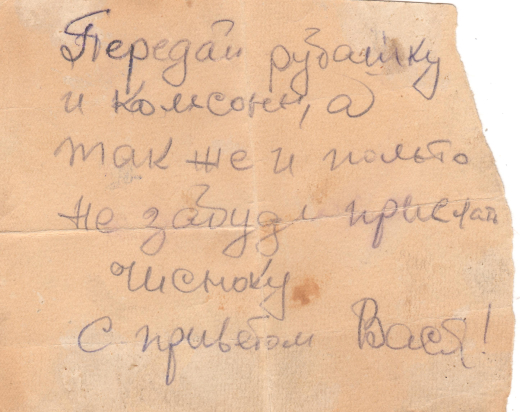 Передай рубашку
и колсоны, а
так же и польто
не забудь прислать
чисноку
С приветом Вася!